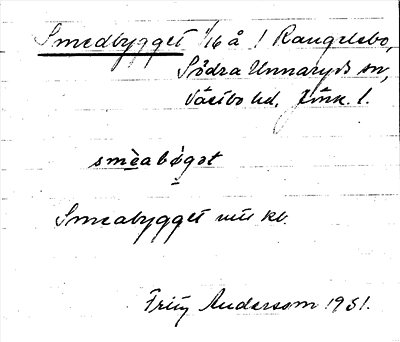 Smedbygget 1/16 å 1 Rangelebo,
Södra Unnaryds sn,
Västbo hd, Jönk. l.
smèabøgət
Smeabygget
Fritz Andersson 1951.